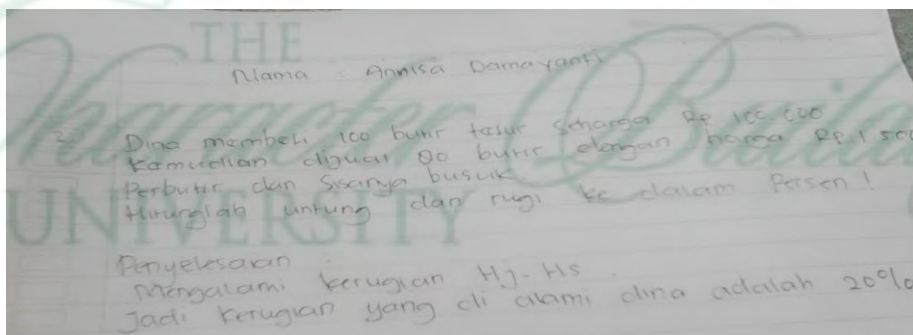 THE
Character Buildin
UNIVERSITY
Nama : Annisa Damayanti
2. Dina membeli 100 butir telur seharga Rp 100.000
Kemudian dijual 80 butir dengan harga Rp.1.500
Perbutir dan Sisanya busuk.
Hitunglah untung dan rugi ke dalam Persen!
Penyelesaian
Mengalami kerugian Hj-Hs.
Jadi kerugian yang di alami dina adalah 20%